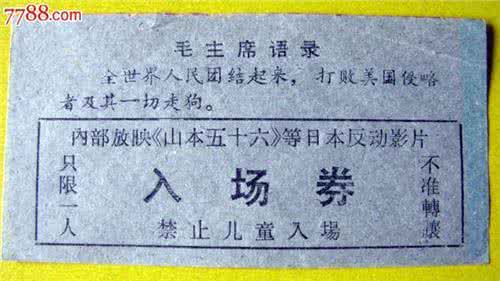 7788.com
毛主席语录
全世界人民团结起来，打败美国侵略
者及其一切走狗。
内部放映《山本五十六》等日本反动影片
只限一人
入场券
不准轉讓
禁止儿童入場